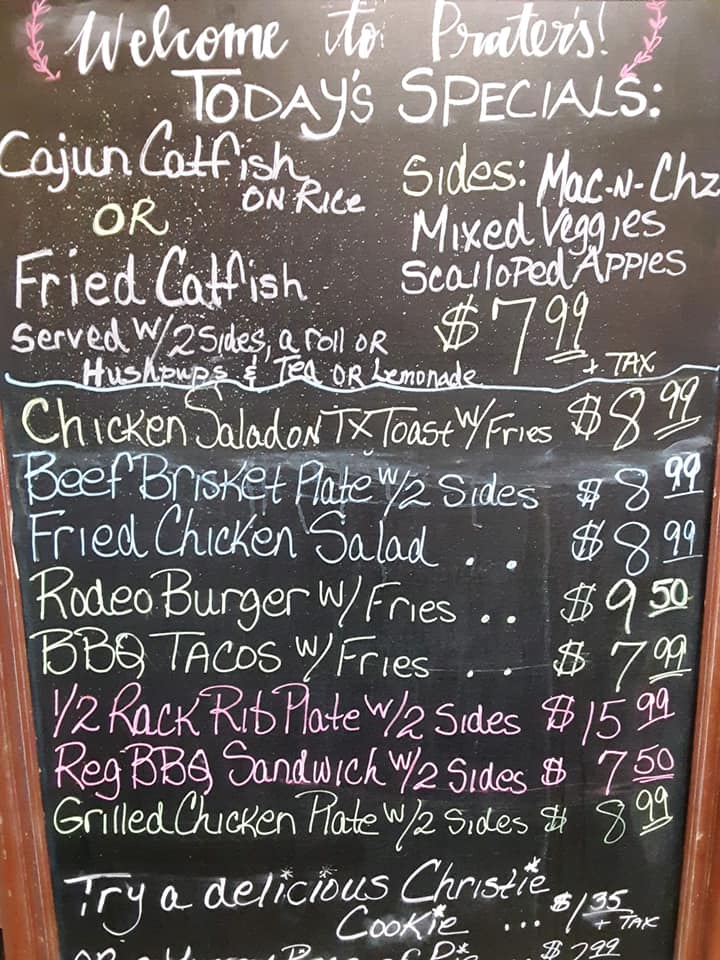 Welcome to Prater's!
TODAY'S SPECIALS:
Cajun Catfish
ON Rice
OR
Fried Catfish
Served W/2 Sides, a roll OR
Hushpups & Tea OR Lemonade
Sides: Mac-N-Chz
Mixed Veggies
Scalloped Apples
$7.99
+ TAX
Chicken Salad on TX Toast w/Fries $8.99
Beef Brisket Plate w/2 Sides $8.99
Fried Chicken Salad .. $8.99
Rodeo Burger w/Fries .. $9.50
BBQ TACOS w/Fries .. $7.99
1/2 Rack Rib Plate w/2 Sides $15.99
Reg BBQ Sandwich w/2 Sides $7.50
Grilled Chicken Plate w/2 Sides $8.99
Try a delicious Christie
Cookie ... $1.35
+ TAX
$2.99